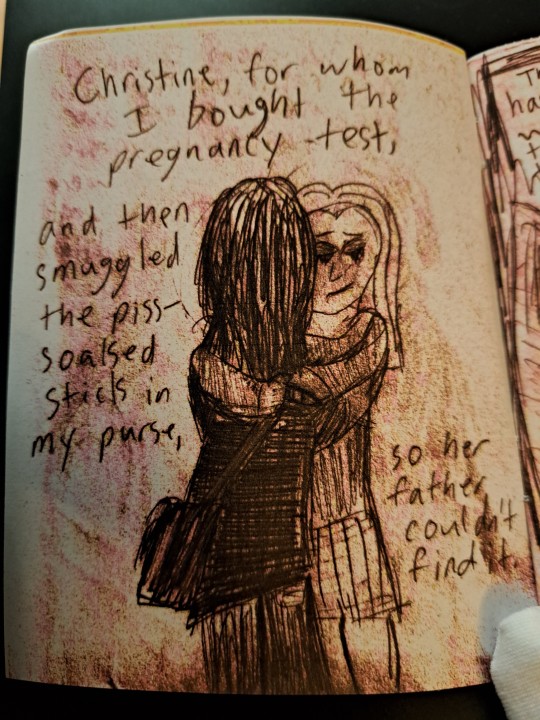 Christine, for whom
I bought the
pregnancy test,
and then
smuggled
the piss-
soaked
stick in
my purse,
so her
father
couldn't
find it.